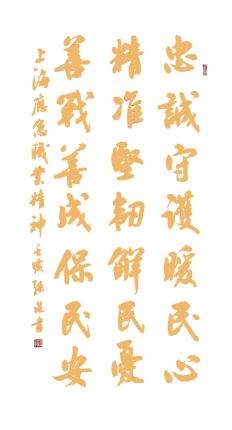 忠誠守護暖民心
精准堅韌解民憂
善戰善成保民安
上海應急職業精神 壬寅 張進書